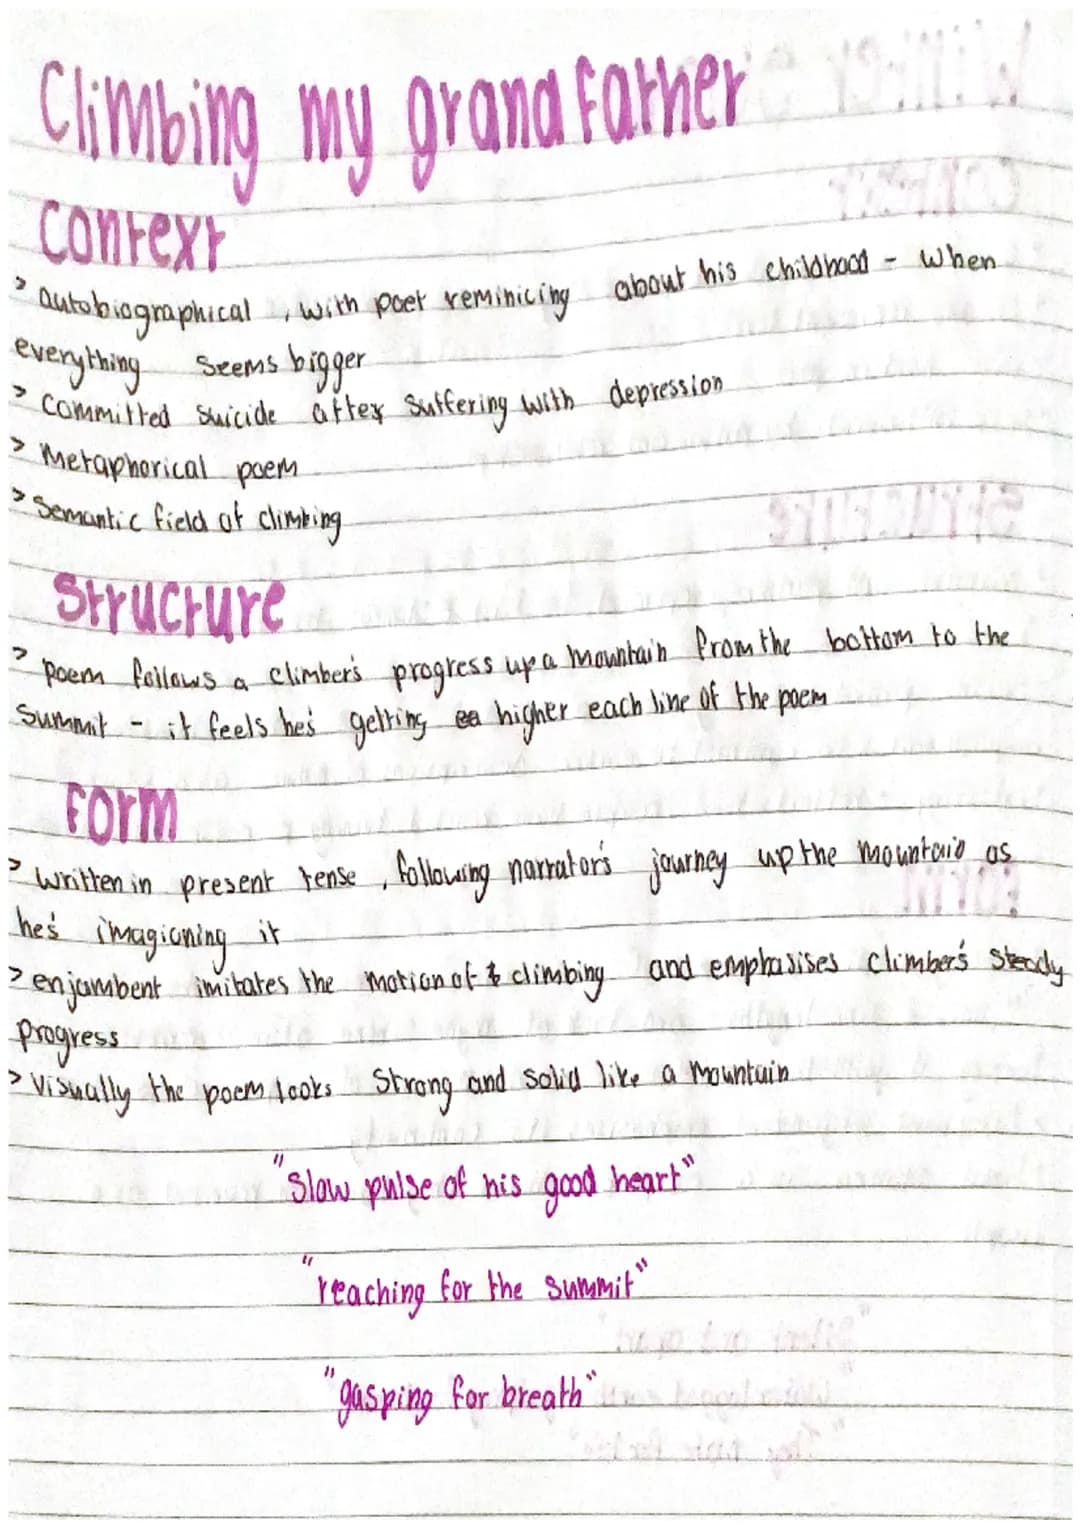 Climbing my grandfather
Context
> autobiographical, with poet reminicing about his childhood - when
everything seems bigger
> Committed suicide after suffering with depression
> Metaphorical poem
> Semantic field of climbing
Structure
> poem follows a climber's progress up a mountain from the bottom to the
summit - it feels he's getting higher each line of the poem
Form
> written in present tense, following narrator's journey up the mountain as
he's imagioning it
> enjambent imitates the motion of climbing and emphasises climber's steady
progress
> visually the poem looks strong and solid like a mountain
"slow pulse of his good heart"
"reaching for the summit"
"gasping for breath"